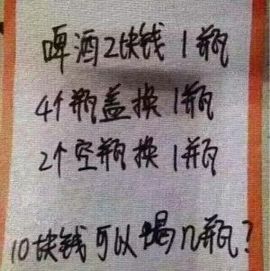 啤酒2块钱1瓶
4个瓶盖换1瓶
2个空瓶换1瓶
10块钱可以喝几瓶?